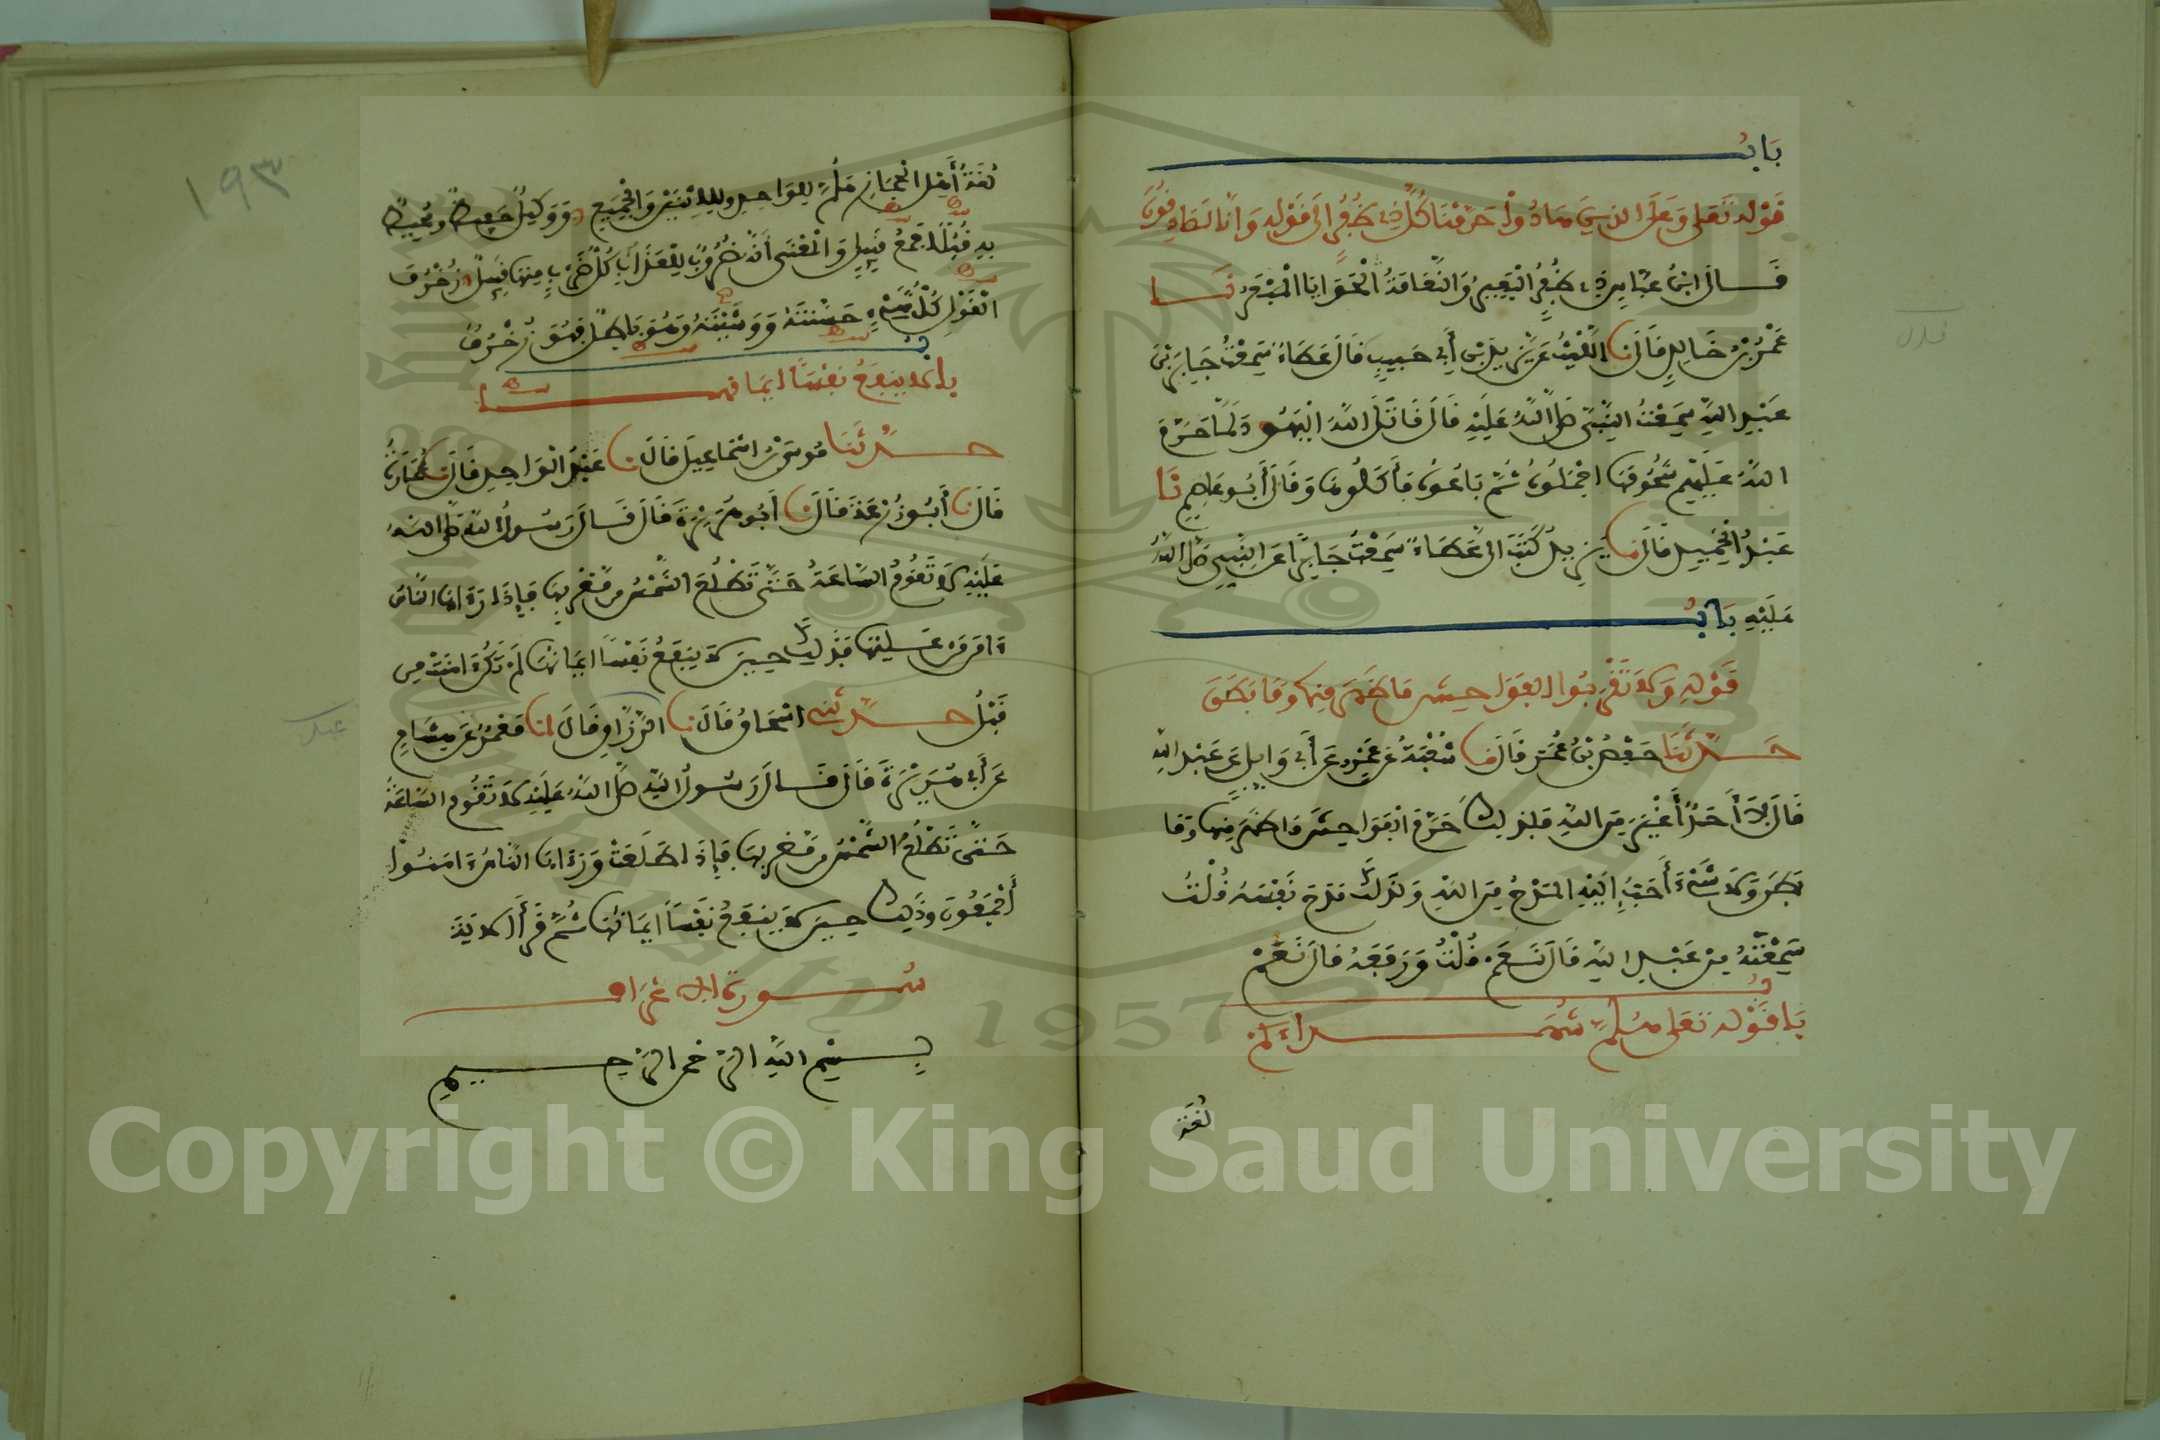 بَابُ
قَوْلِهِ تَعَلَى وَعَلَى الذِينَ هَادُواْ حَرَّمْنَا كُلَّ ذِي ظُفُرٍ الَى قَوْلِهِ وَانَّا لَصَادِقُونَ
قَــالَ ابْنُ عَبَّاسٍ ذِي ظُفُرٍ الْبَعِيرُ وَالنَّعَامَةُ الْحَوَايَا الْمَبْعَرُ نَــا
عَمْرُو بْنُ خَالِدٍ قَالَ نا اللَّيْثُ عَنْ يَزِيدَ بْنِ أَبِي حَبِيبٍ قَالَ عَطَاءٌ سَمِعْتُ جَابِرَ بْنَ
عَبْدِ اللَّهِ سَمِعْتُ النَّبِيَّ صَلَّى اللَّهُ عَلَيْهِ قَالَ قَاتَلَ اللَّهُ الْيَهُودَ لَمَّا حَرَّمَ
اللَّهُ عَلَيْهِمْ شُحُومَهَا اجْمَلُوهُ ثُمَّ بَاعُوهُ فَأَكَلُوهَا وَقَالَ أَبُو عَاصِمٍ نَا
عَبْدُ الْحَمِيدِ قَالَ نا يَزِيدُ كَتَبَ الَىَّ عَطَاءٌ سَمِعْتُ جَابِرًا عَنِ النَّبِيِّ صَلَّى اللَّهُ
عَلَيْهِ بَابُ
قَوْلِهِ وَلَا تَقْرَبُوا الْفَوَاحِشَ مَا ظَهَرَ مِنْهَا وَمَا بَطَنَ
حَــدَّثَنَا حَفْصُ بْنُ عُمَرَ قَالَ نا شُعْبَةُ عَنْ عَمْرٍو عَنْ أَبِي وَايِلٍ عَنْ عَبْدِ اللَّهِ
قَالَ لَا أَحَدٌ أَغْيَرَ مِنَ اللَّهِ فَلِذَلِكَ حَرَّمَ الْفَوَاحِشَ مَا ظَهَرَ مِنْهَا وَمَا
بَطَنَ وَلَا شَيْءَ أَحَبُّ إِلَيْهِ الْمَدْحُ مِنَ اللَّهِ وَلِذَلِكَ مَدَحَ نَفْسَهُ قُلْتُ
سَمِعْتَهُ مِنْ عَبْدِ اللَّهِ قَالَ نَعَمْ قُلْتُ وَرَفَعَهُ قَالَ نَعَمْ
بَابُ قَوْلِهِ تَعَلَى هَلُمَّ شُهَــدَاءَكُمْ
لُغَةُ
لُغَةُ أَهْلِ الْحِجَازِ هَلُمَّ لِلْوَاحِدِ وَلِلِاثْنَيْنِ وَالْجَمِيعِ وَوَكِيلٌ حَفِيظٌ وَمُحِيطٌ
بِهِ قُبُلًا جَمْعُ قَبِيلٍ وَالْمَعْنَى أَنَّهُ ضُرُوبٌ لِلْعَذَابِ كُلُّ ضَرْبٍ مِنْهَا قَبِيلٌ زُخْرُفَ
الْقَوْلِ كُلُّ شَيْءٍ حَسَّنْتَهُ وَوَشَّيْتَهُ وَهُوَ بَاطِلٌ فَهُوَ زُخْرُفٌ
بَابُ لَا يَنفَعُ نَفْسًا ايمَانُهَــا
حَــدَّثَنَا مُوسَى بْنُ اسْمَاعِيلَ قَالَ نا عَبْدُ الْوَاحِدِ قَالَ نا عُمَارَةُ
قَالَ نا أَبُو زُرْعَةَ قَالَ نا أَبُو هُرَيْرَةَ قَالَ قَــالَ رَسُولُ اللَّهِ صَلَّى اللَّهُ
عَلَيْهِ لَا تَقُومُ السَّاعَةُ حَتَّى تَطْلُعَ الشَّمْسُ مِن مَّغْرِبِهَا فَإِذَا رَءَاهَا النَّاسُ
ءَامَنَ مَنْ عَلَيْهَا فَذَلِكَ حِينَ لَا يَنفَعُ نَفْسًا ايمَانُهَا لَمْ تَكُنَ امَنَتْ مِن
قَبْلُ حَــدَّثَنِي اسْحَاقُ قَالَ نا الرَّزَّاقِ قَالَ انا مَعْمَرٌ عَنْ هِشَامٍ
عَنْ أَبِي هُرَيْرَةَ قَالَ قَــالَ رَسُولُ اللَّهِ صَلَّى اللَّهُ عَلَيْهِ لَا تَقُومُ السَّاعَةُ
حَتَّى تَطْلُعَ الشَّمْسُ مِن مَّغْرِبِهَا فَإِذَا طَلَعَتْ وَرَءَاهَا النَّاسُ ءَامَنُواْ
أَجْمَعُونَ وَذَلِكَ حِينَ لَا يَنفَعُ نَفْسًا ايمَانُهَا ثُمَّ قَرَأَ الَايَةَ
سُــورَةُ الَاعْرَافِ
بِــسْمِ اللَّهِ الرَّحْمَنِ الرَّحِــيمِ
١٩٣
Copyright © King Saud University
1957